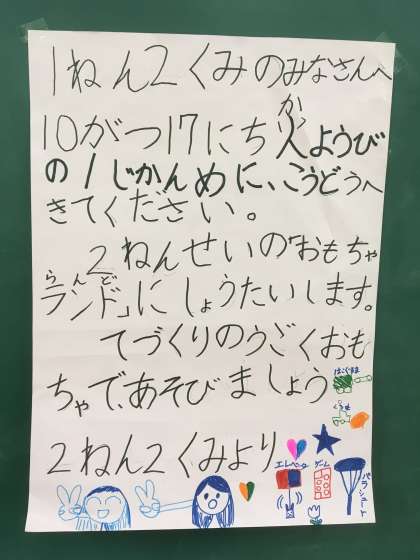 1ねん2くみのみなさんへ
か
10がつ17にち火ようび
の1じかんめに、こうどうへ
きてください。
2ねんせいの「おもちゃ
らんど
ランド」にしょうたいします。
てづくりのうごくおも
ちゃで、あそびましょう
2ねん2くみより
エレベータ
ゲーム
パラシュート